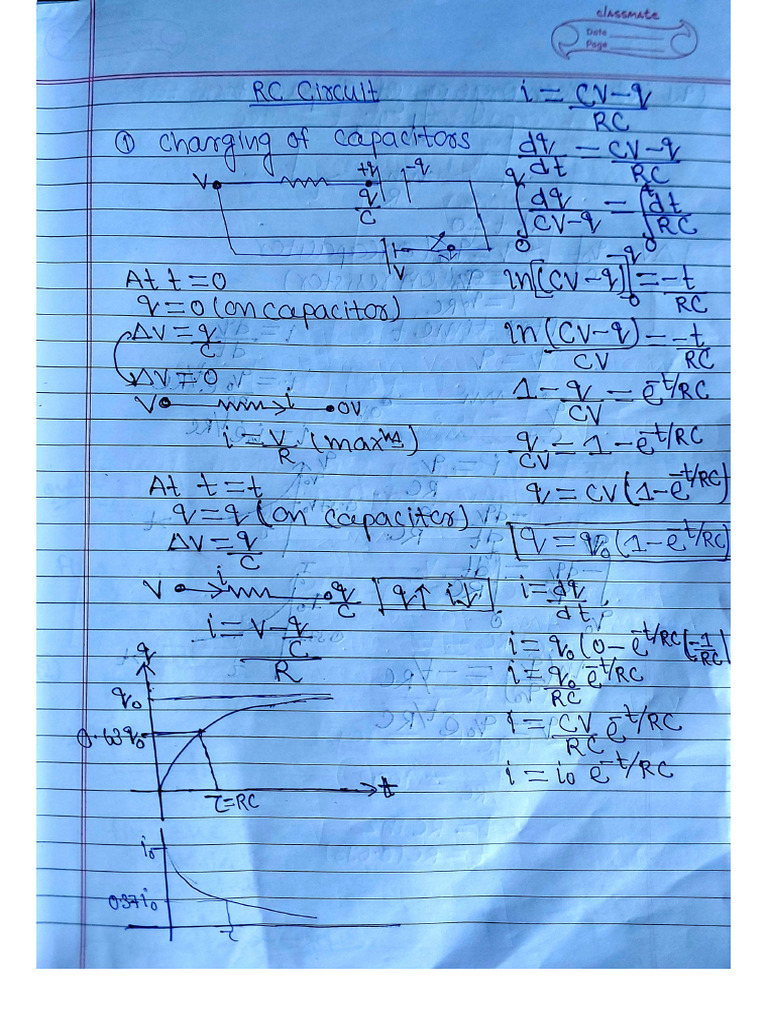 classmate
Date
Page
RC Circuit
① Charging of capacitors
V +q -q
q/C
V
At t=0
q=0 (on capacitor)
ΔV = q/C
ΔV = 0
V i 0V
i = V/R (max^m)
At t=t
q=q (on capacitor)
ΔV = q/C
V i q/C q↑ i↓
i = (V - q/C)/R
q
q₀
t
τ=RC
i₀
0.37i₀
τ
i = (CV-q)/RC
dq/dt = (CV-q)/RC
∫₀^q dq/(CV-q) = ∫₀^t dt/RC
ln[(CV-q)]₀^q = -t/RC
ln (CV-q)/CV = -t/RC
1 - q/CV = e^-t/RC
q/CV = 1 - e^-t/RC
q = CV(1-e^-t/RC)
q = q₀(1-e^-t/RC)
i = dq/dt
i = q₀(0-e^-t/RC(-1/RC)
i = q₀/RC e^-t/RC
i = CV/RC e^-t/RC
i = i₀ e^-t/RC